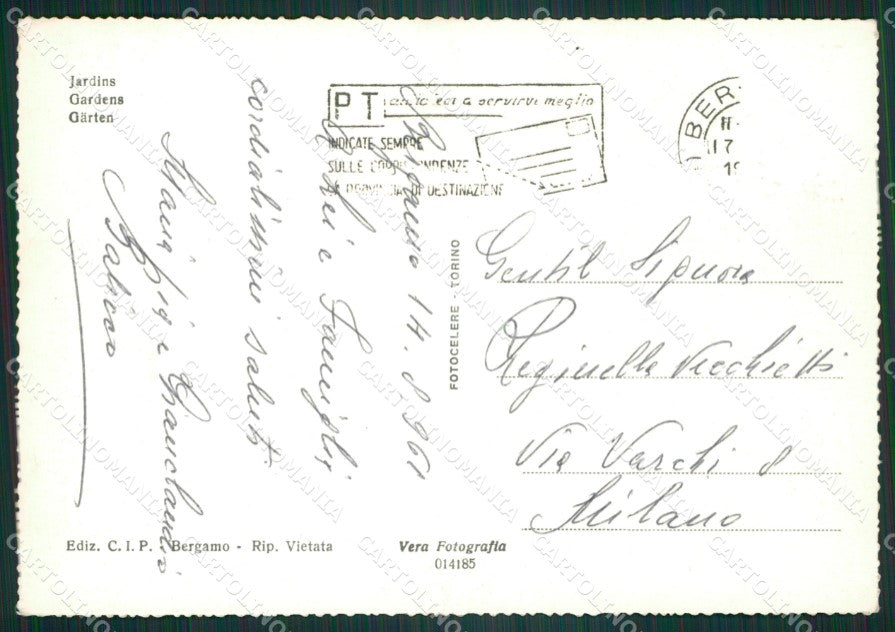 Jardins
Gardens
Gärten
PT aiutateci a servirvi meglio
INDICATE SEMPRE
SULLE CORRISPONDENZE
LA PROVINCIA DI DESTINAZIONE
BER
17
19
Bergamo 14.8.961
A Lei e Famiglia
cordialissimi saluti
Mariapia e Gianclaudio
FOTOCELERE - TORINO
Gentil Signora
Reginella Vecchietti
Via Varchi 8
Milano
Ediz. C.I.P. - Bergamo - Rip. Vietata
Vera Fotografia
014185
CARTOLINOMANIA